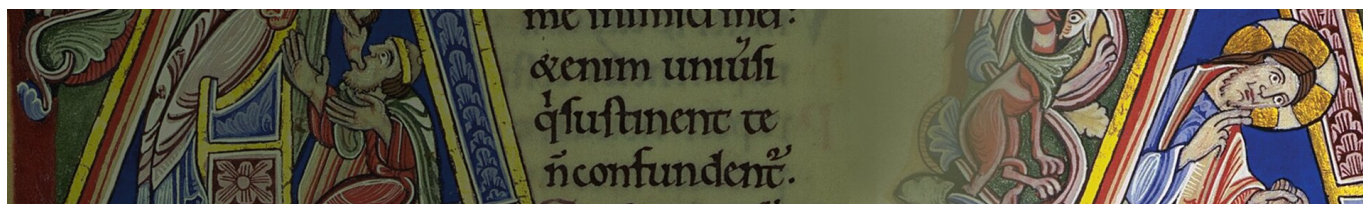 me inimici mei:
&enim uniũsi
q̇sustinent te
ñconfundent᷑.